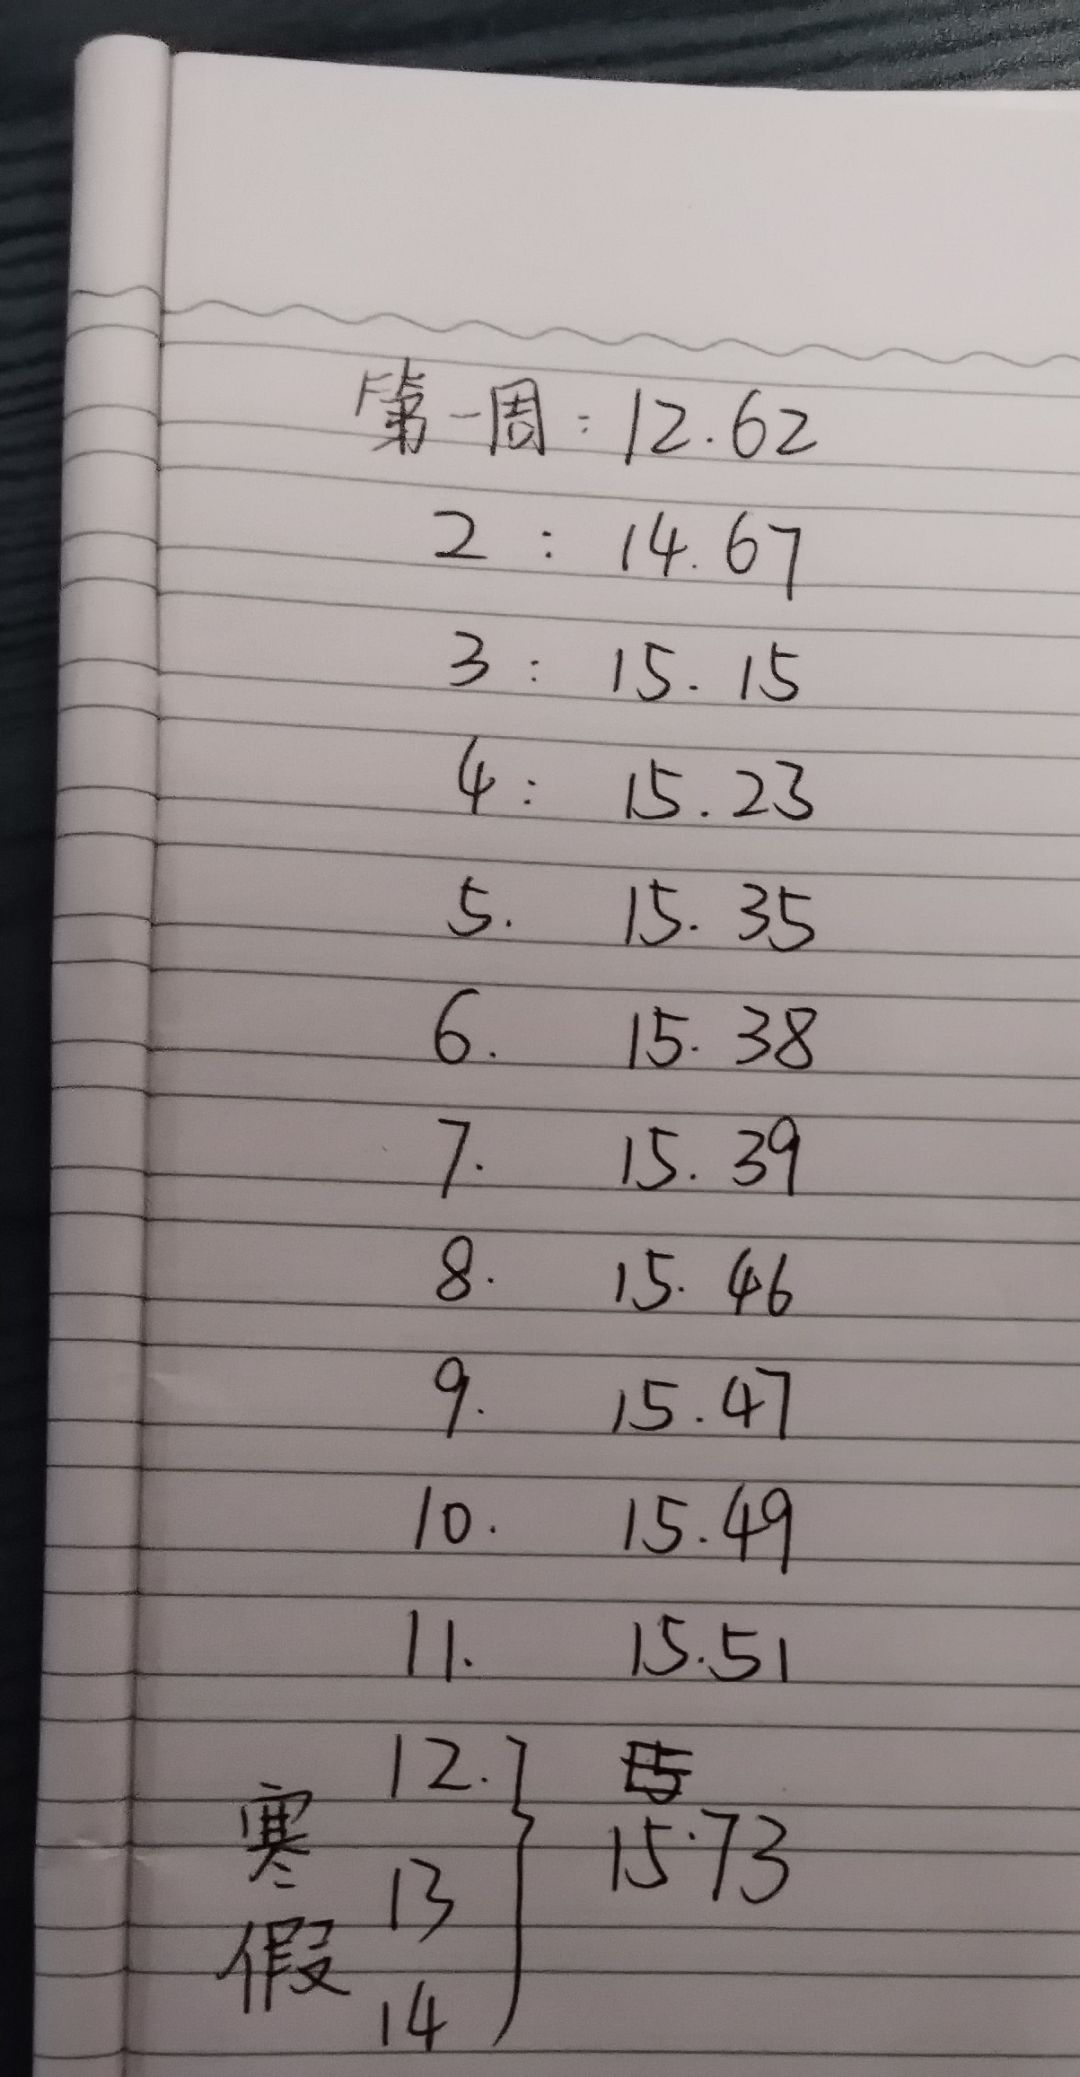 第一周：12.62
2：14.67
3：15.15
4：15.23
5. 15.35
6. 15.38
7. 15.39
8. 15.46
9. 15.47
10. 15.49
11. 15.51
12.
寒 15.73
13
假
14